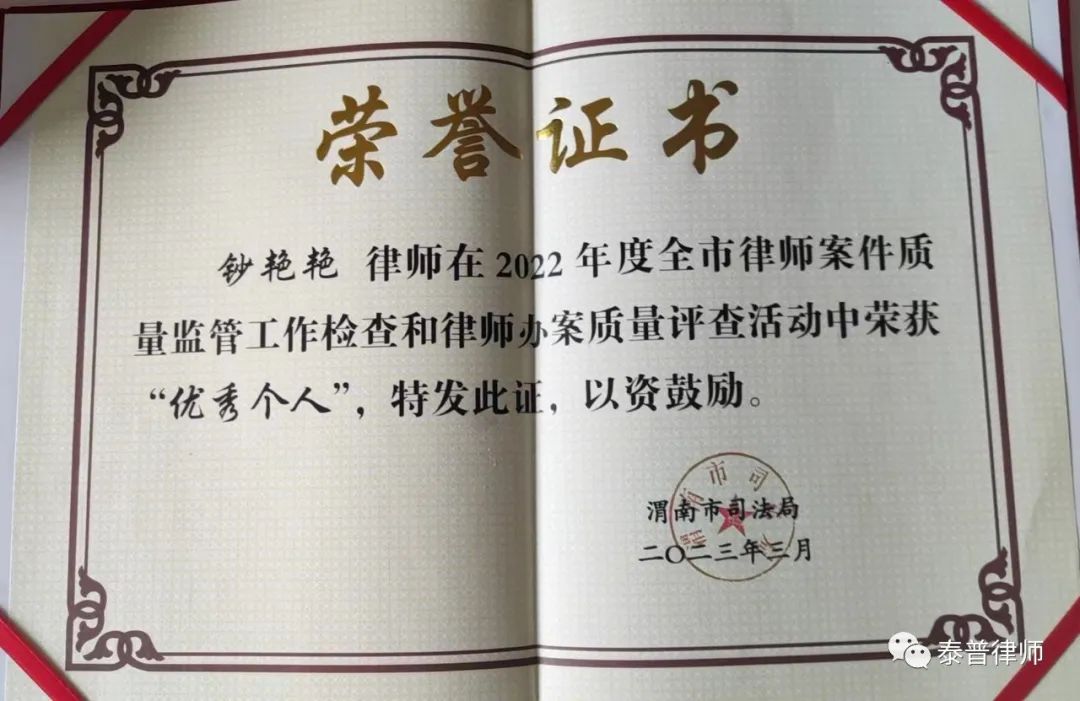 荣誉证书
钞艳艳 律师在2022年度全市律师案件质
量监管工作检查和律师办案质量评查活动中荣获
“优秀个人”，特发此证，以资鼓励。
渭南市司法局
二〇二三年三月
泰普律师